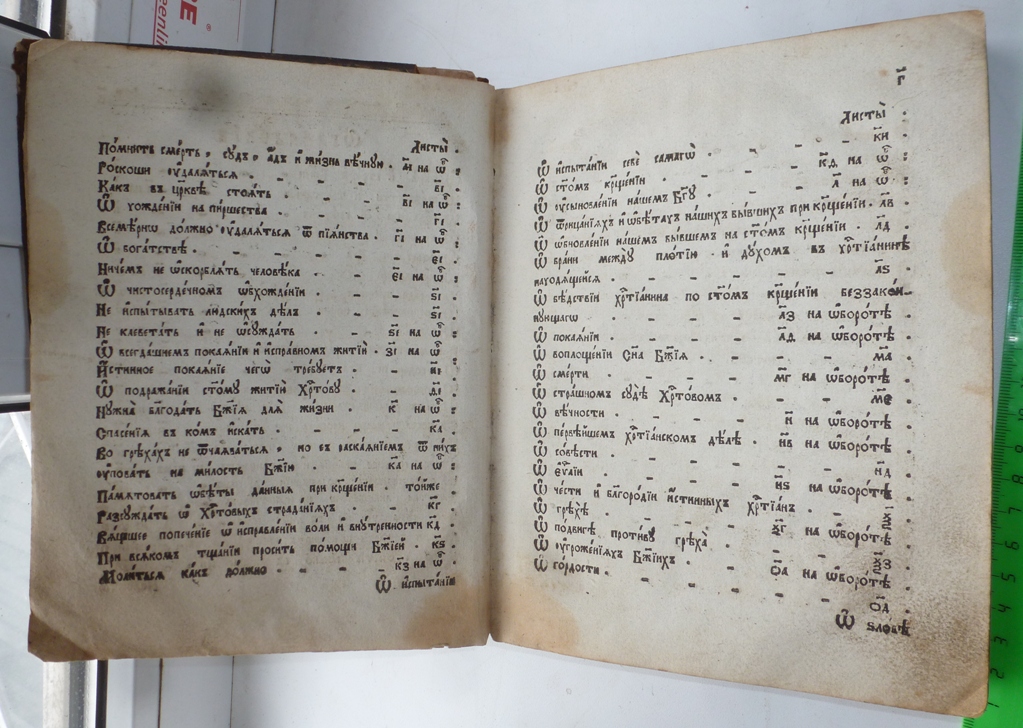 Листы̀ .
По́мнить сме́рть , сꙋ́дъ , а҆́дъ и҆ жи́знь вѣ́чнꙋю . а҃і на ѡ҆ :
Ро́скоши ᲂу҆далѧ́ться . – – – – в҃і .
Ка́къ въ цр҃квѣ стоѧ́ть – – – в҃і на ѡ҆ :
Ѡ҆ хожде́нїи на пи́ршества . – – – г҃і .
Всемѣ́рнѡ до́лжно ᲂу҆далѧ́ться ѿ пїѧ́нства . г҃і на ѡ҆ :
Ѡ҆ бога́тствѣ . – – – – – є҃і .
Ниче́мъ не ѡ҆скорблѧ́ть человѣ́ка – є҃і на ѡ҆ :
Ѡ҆ чистосерде́чномъ ѡ҆бхожде́нїи . – – ѕ҃і .
Не и҆спы́тывать людски́хъ дѣ́лъ . – – ѕ҃і .
Не клевета́ть и҆ не ѡ҆сꙋжда́ть – ѕ҃і на ѡ҆ :
Ѡ҆ всегда́шнемъ покаѧ́нїи и҆ и҆спра́вномъ житїѝ . з҃і на ѡ҆ :
И҆́стинное покаѧ́нїе чегѡ̀ тре́бꙋетъ . – и҃і .
Ѡ҆ подража́нїи ст҃о́мꙋ житїю̀ Хрⷭ҇то́вꙋ – – .
Нꙋжна̀ бл҃года́ть Бж҃їѧ для жи́зни . – к҃ на ѡ҆ :
Спасе́нїѧ въ ко́мъ и҆ска́ть – – – – к҃а .
Во грѣха́хъ не ѿчаѧва́ться , но съ раска́ѧнїемъ ѿ ни́хъ
ᲂу҆пова́ть на ми́лость Бж҃їю . – – к҃а на ѡ҆ :
Па́мѧтовать ѡ҆бѣ́ты да́нныѧ при кр҃ще́нїи . то́йже .
Разсꙋжда́ть ѡ҆ Хрⷭ҇то́выхъ страда́нїѧхъ . – – к҃г .
Вѧ́щшее попече́нїе ѡ҆ и҆справле́нїи во́ли и҆ внꙋ́тренности к҃д .
При всѧ́комъ тща́нїи проси́ть по́мощи Бж҃їей . к҃ѕ .
Моли́ться ка́къ до́лжно – – – – к҃з на ѡ҆ :
Ѡ҆ и҆спыта́нїи
г҃
Листы̀ .
Ѡ҆ и҆спыта́нїи себѐ самагѡ̀ . – – – к҃и .
Ѡ҆ ст҃о́мъ кр҃ще́нїи . – – – – на ѡ҆ :
Ѡ҆ ᲂу҆сыновле́нїи на́шемъ Бг҃ꙋ . – – л҃ на ѡ҆ :
Ѡ҆ ѿрица́нїѧхъ и҆ ѡ҆бѣ́тахъ на́шихъ бы́вшихъ при кр҃ще́нїи . л҃в .
Ѡ҆ ѡ҆бновле́нїи на́шемъ бы́вшемъ на ст҃о́мъ кр҃ще́нїи . л҃д .
Ѡ҆ бра́ни междꙋ̀ пло́тїю и҆ дꙋ́хомъ въ хрⷭ҇тїа́нинѣ
находѧ́щейсѧ . – – – – – – л҃ѕ .
Ѡ҆ бѣ́дствїи хрⷭ҇тїа́нина по ст҃о́мъ кр҃ще́нїи беззако́н–
нꙋющагѡ – – – – л҃з на ѡ҆боро́тѣ .
Ѡ҆ покаѧ́нїи . – – – – на ѡ҆боро́тѣ .
Ѡ҆ воплоще́нїи Сн҃а Бж҃їѧ . – – – – м҃а .
Ѡ҆ сме́рти . – – – – м҃г на ѡ҆боро́тѣ .
Ѡ҆ стра́шномъ сꙋдѣ̀ Хрⷭ҇то́вомъ . – – – м҃є .
Ѡ҆ вѣ́чности . – – – – н҃ на ѡ҆боро́тѣ .
Ѡ҆ первѣ́йшемъ хрⷭ҇тїа́нскомъ дѣ́лѣ . – н҃в на ѡ҆боро́тѣ .
Ѡ҆ со́вѣсти . – – – – – – н҃д .
Ѡ҆ є҆ѵⷢ҇лїи – – – – н҃ѕ на ѡ҆боро́тѣ .
Ѡ҆ че́сти и҆ бл҃горо́дїи и҆́стинныхъ хрⷭ҇тїа́нъ . – ѯ҃ .
Ѡ҆ грѣхѣ̀ . – – – – ѯ҃г на ѡ҆боро́тѣ .
Ѡ҆ по́двигѣ проти́вꙋ грѣха̀ . – – – ѯ҃з .
Ѡ҆ ᲂу҆гроже́нїѧхъ Бж҃їихъ . – – о҃а на ѡ҆боро́тѣ .
Ѡ҆ го́рдости . – – – – – – о҃д .
Ѡ҆ ѕло́бѣ